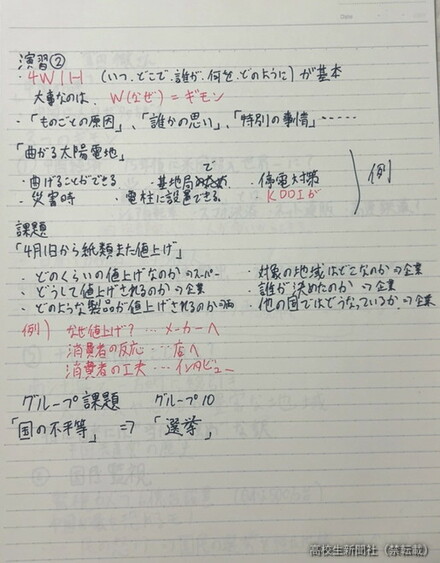 演習②
・4W1H （いつ、どこで、誰が、何を、どのように）が基本
大事なのは、W（なぜ）＝ギモン
・「ものごとの原因」、「誰かの思い」、「特別の事情」……
「曲がる太陽電地」
・曲げることができる ・基地局で ・停電対策
・災害時 ・電柱に設置できる ・KDDIが
例
課題
「4月1日から紙類また値上げ」
・どのくらいの値上げなのか⇒スーパー ・対象の地域はどこなのか⇒企業
・どうして値上げされるのか⇒企業 ・誰が決めたのか⇒企業
・どのような製品が値上げされるのか⇒ ・他の国ではどうなっているか⇒企業
例） なぜ値上げ？…メーカーへ
消費者の反応…店へ
消費者の工夫…インタビュー
グループ課題 グループ10
「国の不平等」⇒「選挙」
高校生新聞社（禁転載）